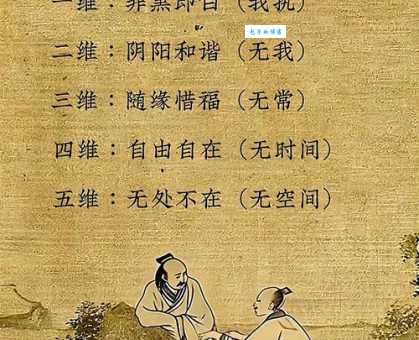 一维：非黑即白（我执）
二维：阴阳和谐（无我）
三维：随缘惜福（无常）
四维：自由自在（无时间）
五维：无处不在（无空间）